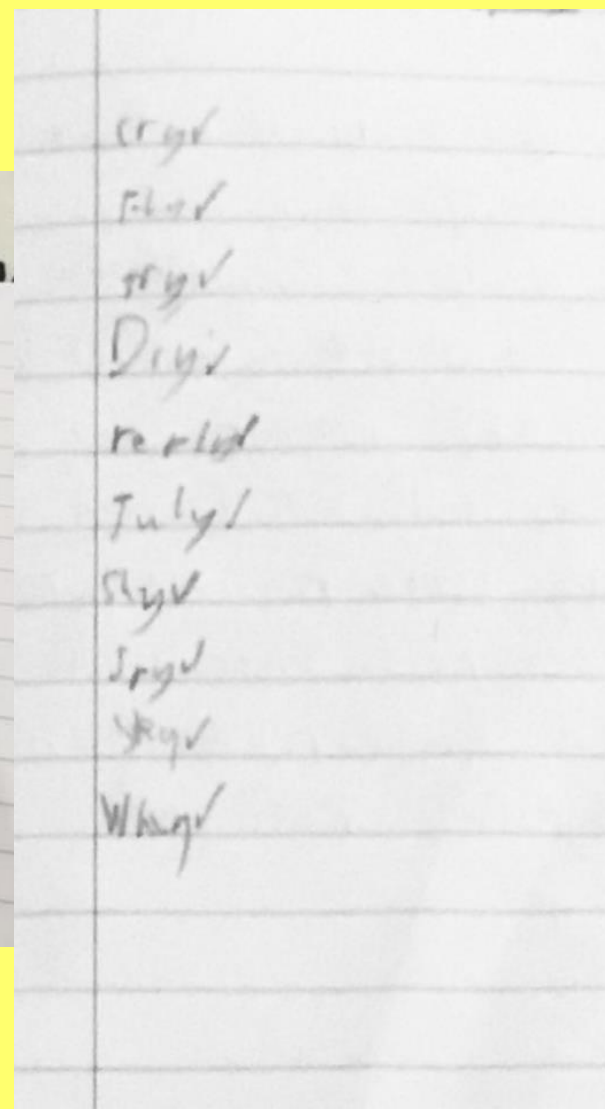 cry✓
Fly✓
try✓
Dry✓
reply✓
July✓
Shy✓
Spy✓
Why✓